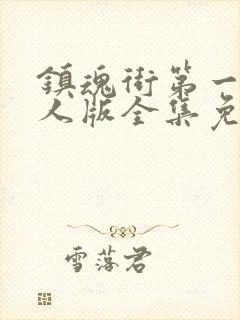 鎮魂街第一
人版全集免
雪落君